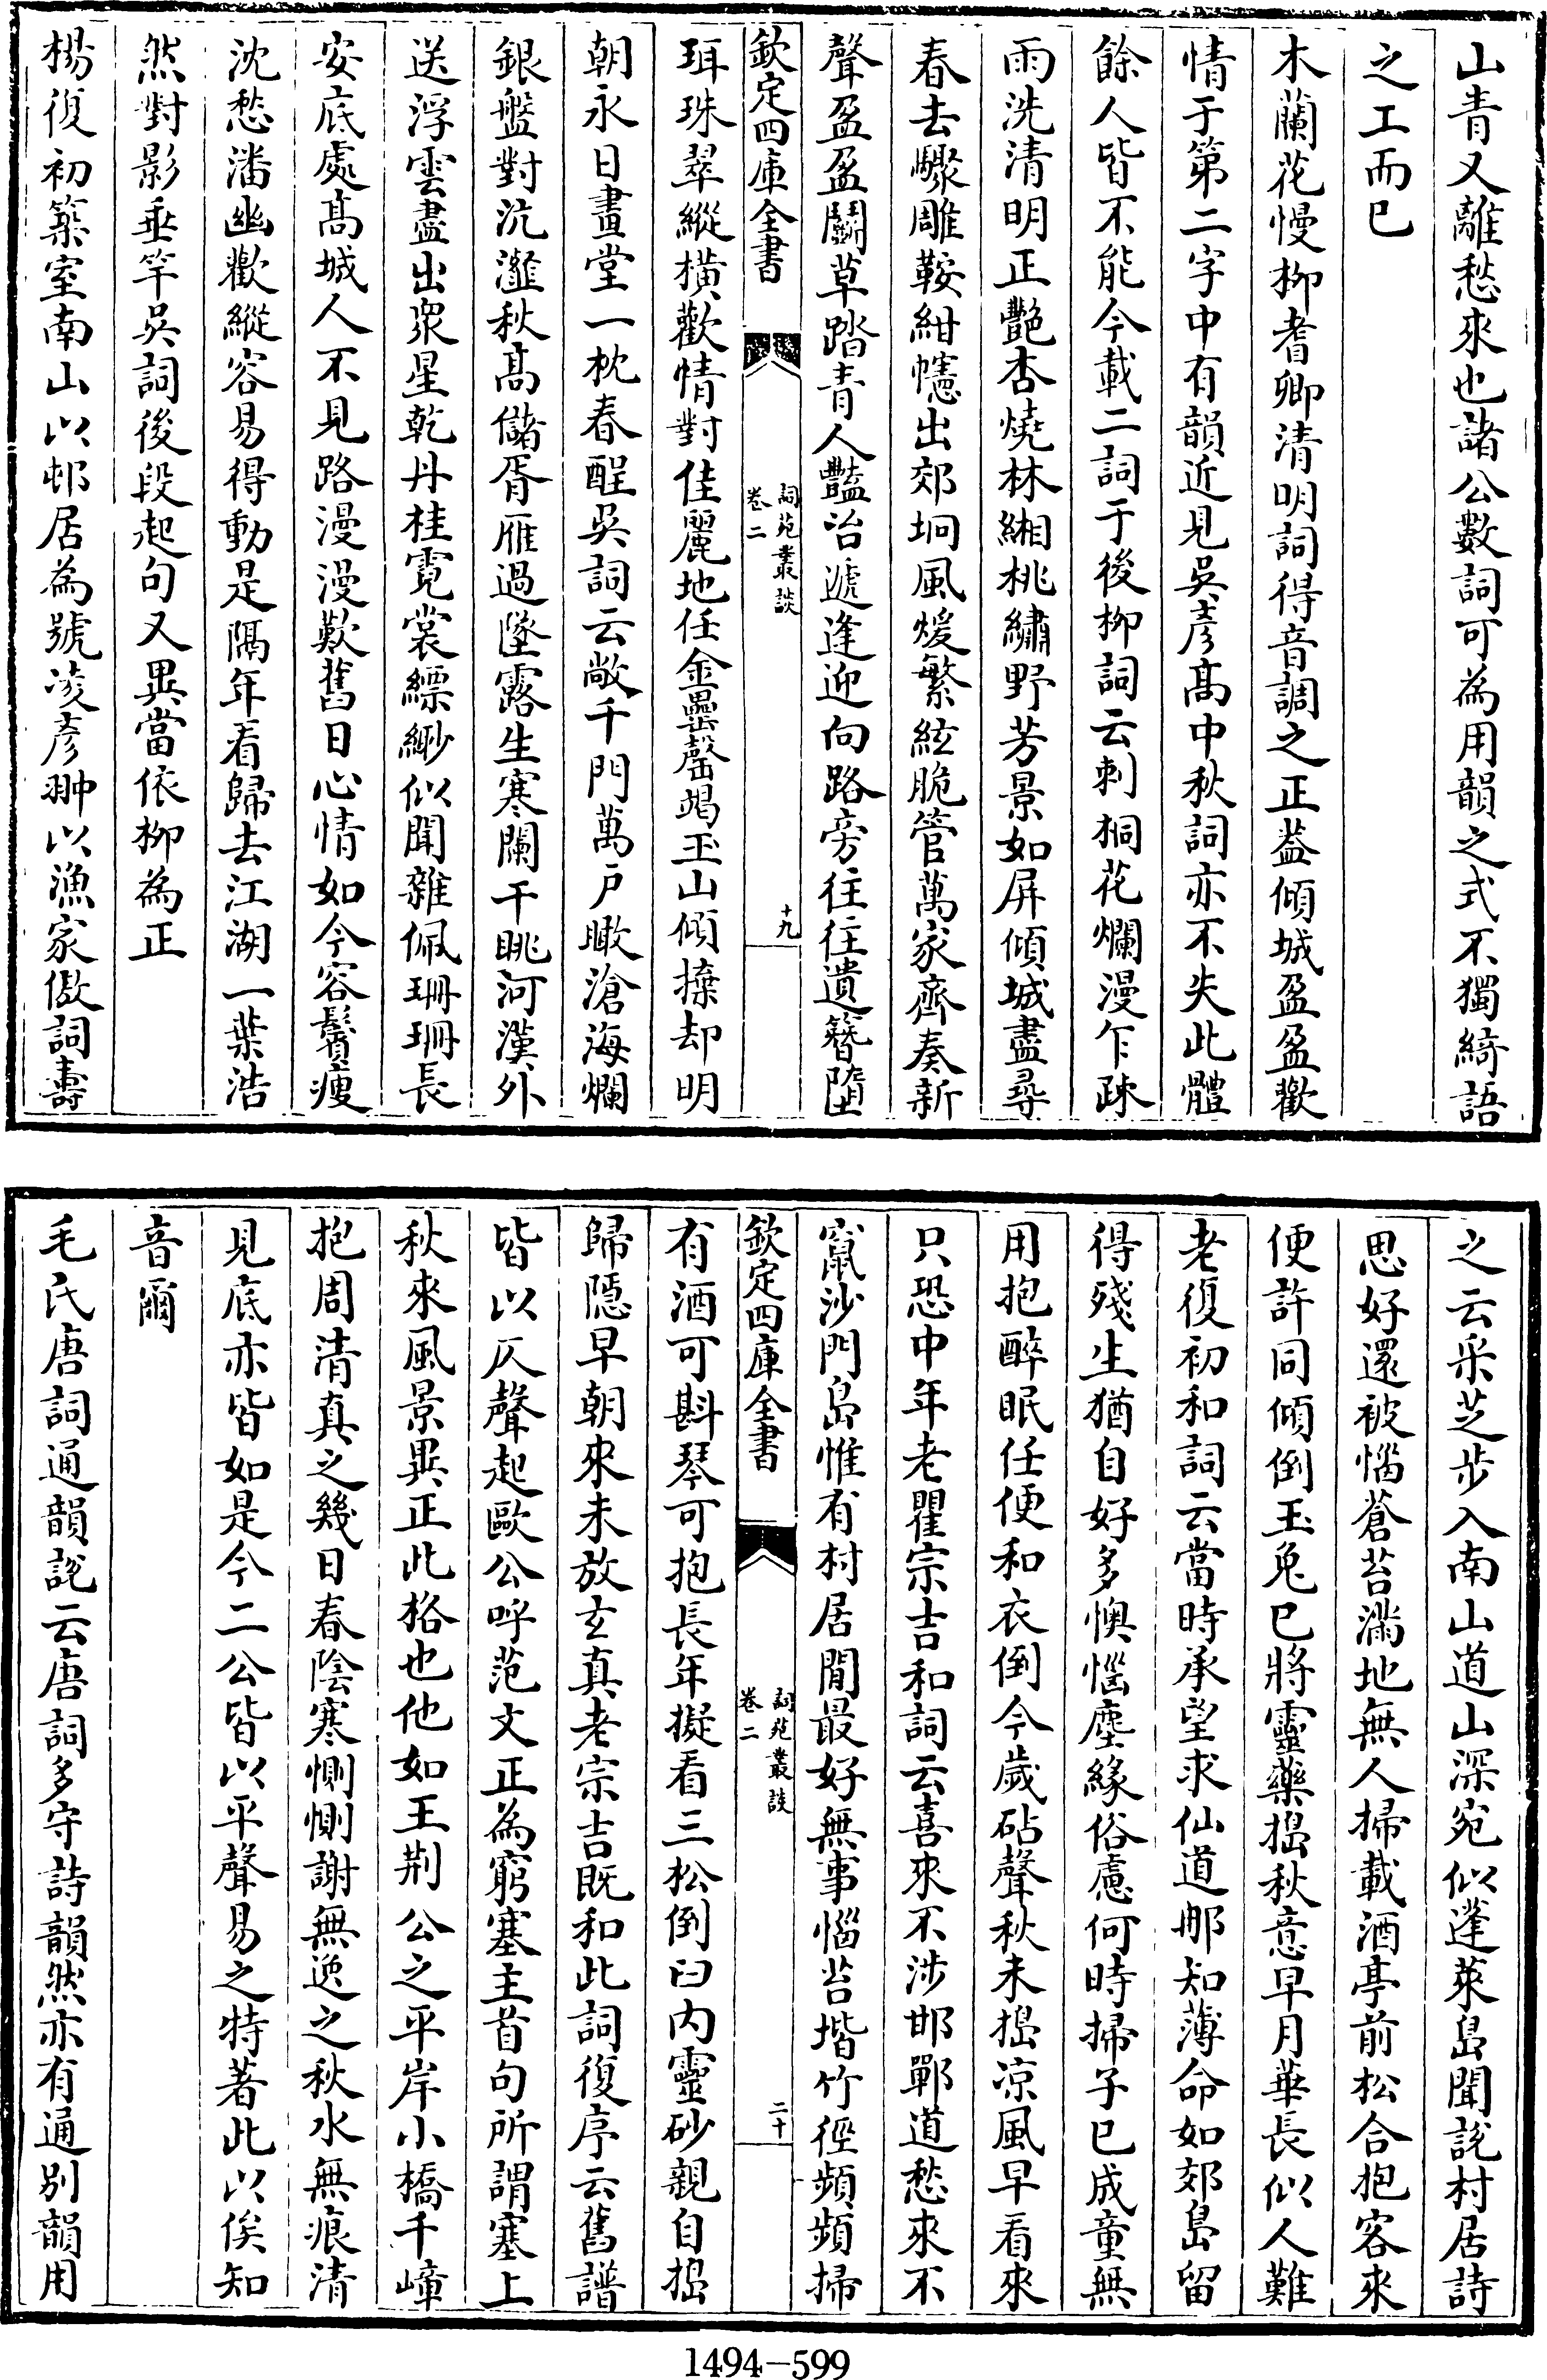 山青又離愁來也諸公數詞可為用韻之式不獨綺語
之工而已
木蘭花慢柳耆卿清明詞得音調之正葢傾城盈盈歡
情于第二字中有韻近見吳彥髙中秋詞亦不失此體
餘人皆不能今載二詞于後柳詞云剌桐花爛漫乍疎
雨洗清明正艷杏燒林緗桃繡野芳景如屏傾城盡尋
春去驟雕鞍紺幰出郊坰風煖繁絃脆管萬家齊奏新
聲盈盈鬬草踏青人豔冶遞逢迎向路旁往往遺簪墮
欽定四庫全書
詞苑叢談
卷二
十九
珥珠翠縱橫歡情對佳麗地任金罍罄竭玉山傾擽却明
朝永日畫堂一枕春酲吳詞云敞千門萬戶瞰滄海爛
銀盤對沆瀣秋髙儲胥雁過墜露生寒闌干眺河漢外
送浮雲盡出衆星乾丹桂霓裳縹緲似聞雜佩珊珊長
安底處髙城人不見路漫漫歎舊日心情如今容鬢瘦
沈愁潘幽歡縱容易得動是隔年看歸去江湖一葉浩
然對影垂竿吳詞後段起句又異當依柳為正
楊復初築室南山以邨居為號凌彥翀以漁家傲詞壽
之云采芝步入南山道山深宛似蓬萊島聞說村居詩
思好還被惱蒼苔滿地無人掃載酒亭前松合抱客來
便許同傾倒玉兎已將靈藥搗秋意早月華長似人難
老復初和詞云當時承望求仙道那知薄命如郊島留
得殘生猶自好多懊惱塵緣俗慮何時掃子已成童無
用抱醉眠任便和衣倒今歲砧聲秋未搗凉風早看來
只恐中年老瞿宗吉和詞云喜來不涉邯鄲道愁來不
竄沙門島惟有村居閒最好無事惱苔堦竹徑頻頻掃
欽定四庫全書
詞苑叢談
卷二
二十
有酒可斟琴可抱長年擬看三松倒臼内靈砂親自搗
歸隱早朝來未放玄真老宗吉既和此詞復序云舊譜
皆以仄聲起歐公呼范文正為窮塞主首句所謂塞上
秋來風景異正此格也他如王荆公之平岸小橋千嶂
抱周清真之幾日春陰寒惻惻謝無逸之秋水無痕清
見底亦皆如是今二公皆以平聲易之特著此以俟知
音爾
毛氏唐詞通韻說云唐詞多守詩韻然亦有通別韻用
1494—599